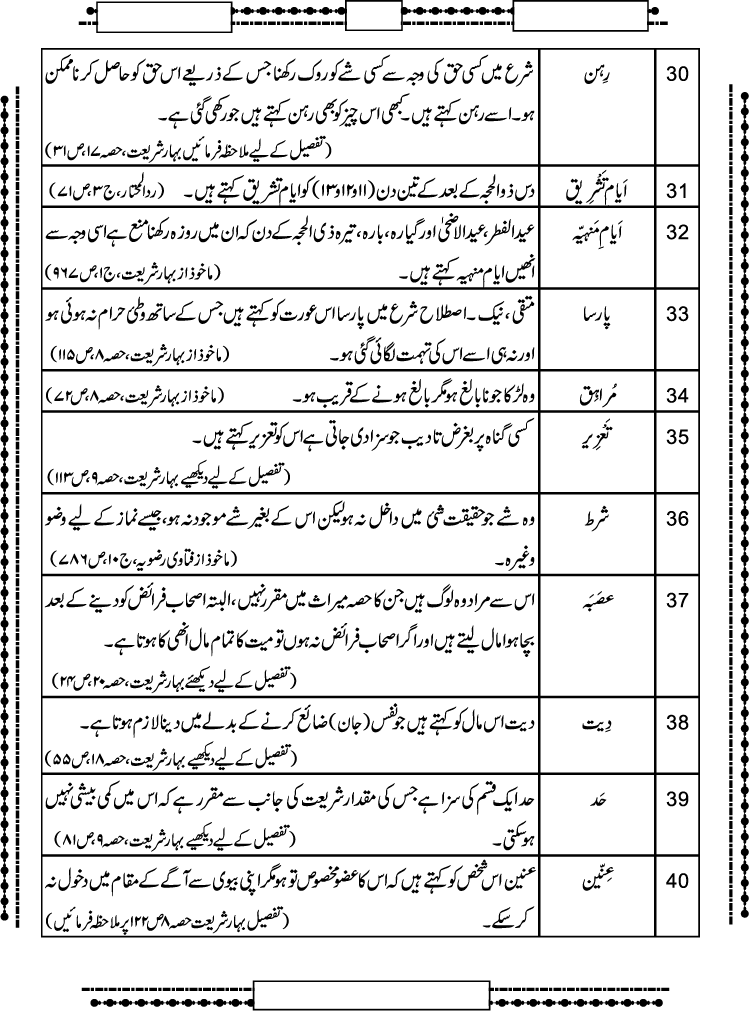 30 رِہن شرع میں کسی حق کی وجہ سے کسی شے کو روک رکھنا جس کے ذریعے اس حق کو حاصل کرنا ممکن
ہو۔ اسے رہن کہتے ہیں۔ کبھی اس چیز کو بھی رہن کہتے ہیں جو رکھی گئی ہے۔
(تفصیل کے لیے ملاحظہ فرمائیں بہار شریعت، حصہ ۱۷، ص۳۱)
31 اَیام تَشرِیق دس ذوالحجہ کے بعد کے تین دن (۱۱و۱۲و۱۳) کو ایام تشریق کہتے ہیں۔ (ردالمحتار، ج۳، ص۷۱)
32 اَیامِ مَنہیّہ عیدالفطر، عیدالاضحیٰ اور گیارہ، بارہ، تیرہ ذی الحجہ کے دن کہ ان میں روزہ رکھنا منع ہے اسی وجہ سے
انھیں ایام منہیہ کہتے ہیں۔ (ماخوذ از بہار شریعت، ج۱، ص۹۶۷)
33 پارسا متقی، نیک۔ اصطلاح شرع میں پارسا اس عورت کو کہتے ہیں جس کے ساتھ وطئ حرام نہ ہوئی ہو
اور نہ ہی اسے اس کی تہمت لگائی گئی ہو۔ (ماخوذ از بہار شریعت، حصہ ۸، ص۱۱۵)
34 مُراہِق وہ لڑکا جو نابالغ ہو مگر بالغ ہونے کے قریب ہو۔ (ماخوذ از بہار شریعت، حصہ ۸، ص۷۲)
35 تَعْزِیر کسی گناہ پر بغرض تادیب جو سزا دی جاتی ہے اس کو تعزیر کہتے ہیں۔
(تفصیل کے لیے دیکھیے بہار شریعت، حصہ ۹، ص۱۱۳)
36 شرط وہ شے جو حقیقت شئ میں داخل نہ ہو لیکن اس کے بغیر شے موجود نہ ہو، جیسے نماز کے لیے وضو
وغیرہ۔ (ماخوذ از فتاوی رضویہ، ج۱۰، ص۷۸۶)
37 عصَبَہ اس سے مراد وہ لوگ ہیں جن کا حصہ میراث میں مقرر نہیں، البتہ اصحاب فرائض کو دینے کے بعد
بچا ہوا مال لیتے ہیں اور اگر اصحاب فرائض نہ ہوں تو میت کا تمام مال انھی کا ہوتا ہے۔
(تفصیل کے لیے دیکھئے بہار شریعت، حصہ ۲۰، ص۲۴)
38 دِیت دیت اس مال کو کہتے ہیں جو نفس (جان) ضائع کرنے کے بدلے میں دینا لازم ہوتا ہے۔
(تفصیل کے لیے دیکھیے بہار شریعت، حصہ ۱۸، ص۵۵)
39 حَد حد ایک قسم کی سزا ہے جس کی مقدار شریعت کی جانب سے مقرر ہے کہ اس میں کمی بیشی نہیں
ہو سکتی۔ (تفصیل کے لیے دیکھیے بہار شریعت، حصہ ۹، ص۸۱)
40 عِنّین عنین اس شخص کو کہتے ہیں کہ اس کا عضو مخصوص تو ہو مگر اپنی بیوی سے آگے کے مقام میں دخول نہ
کر سکے۔ (تفصیل بہار شریعت حصہ ۸ ص۱۲۲ پر ملاحظہ فرمائیں)